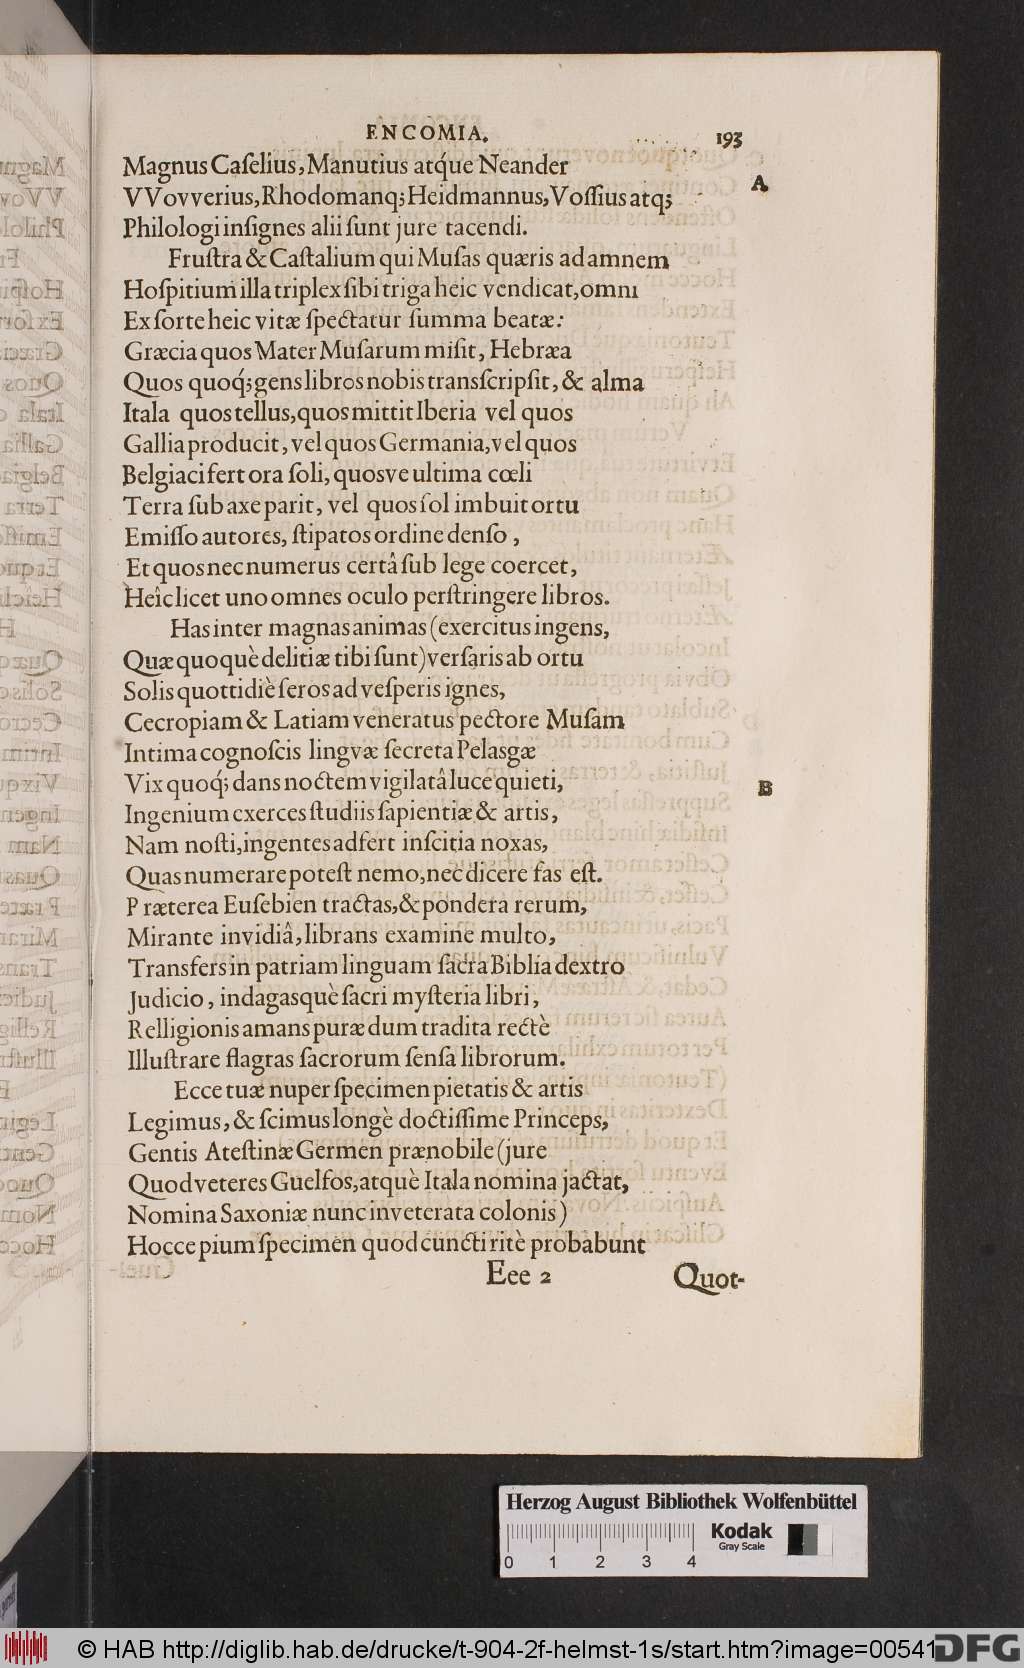 ENCOMIA.
193
Magnus Caſelius, Manutius atq́ue Neander
A
VVovverius, Rhodomanq; Heidmannus, Voſſius atq;
Philologi inſignes alii ſunt jure tacendi.
Fruſtra & Caſtalium qui Muſas quæris ad amnem
Hoſpitium illa triplex ſibi triga heic vendicat, omni
Ex ſorte heic vitæ ſpectatur ſumma beatæ:
Græcia quos Mater Muſarum miſit, Hebræa
Quos quoq́; gens libros nobis transſcripſit, & alma
Itala quos tellus, quos mittit Iberia vel quos
Gallia producit, vel quos Germania, vel quos
Belgiaci fert ora ſoli, quosve ultima cœli
Terra ſub axe parit, vel quos ſol imbuit ortu
Emiſſo autores, ſtipatos ordine denſo,
Et quos nec numerus certâ ſub lege coercet,
Heîc licet uno omnes oculo perſtringere libros.
Has inter magnas animas (exercitus ingens,
Quæ quoquè delitiæ tibi ſunt) verſaris ab ortu
Solis quottidiè ſeros ad veſperis ignes,
Cecropiam & Latiam veneratus pectore Muſam
Intima cognoſcis lingvæ ſecreta Pelasgæ
Vix quoq́; dans noctem vigilatâ luce quieti,
B
Ingenium exerces ſtudiis ſapientiæ & artis,
Nam noſti, ingentes adfert inſcitia noxas,
Quas numerare poteſt nemo, nec dicere fas eſt.
Præterea Euſebien tractas, & pondera rerum,
Mirante invidiâ, librans examine multo,
Transfers in patriam linguam ſacra Biblia dextro
Judicio, indagasquè ſacri myſteria libri,
Relligionis amans puræ dum tradita rectè
Illuſtrare flagras ſacrorum ſenſa librorum.
Ecce tuæ nuper ſpecimen pietatis & artis
Legimus, & ſcimus longè doctiſſime Princeps,
Gentis Ateſtinæ Germen prænobile (jure
Quod veteres Guelfos, atquè Itala nomina jactat,
Nomina Saxoniæ nunc inveterata colonis)
Hocce pium ſpecimen quod cuncti ritè probabunt
Eee 2
Quot-
Herzog August Bibliothek Wolfenbüttel
Kodak
Gray Scale
0 1 2 3 4
© HAB http://diglib.hab.de/drucke/t-904-2f-helmst-1s/start.htm?image=00541
DFG